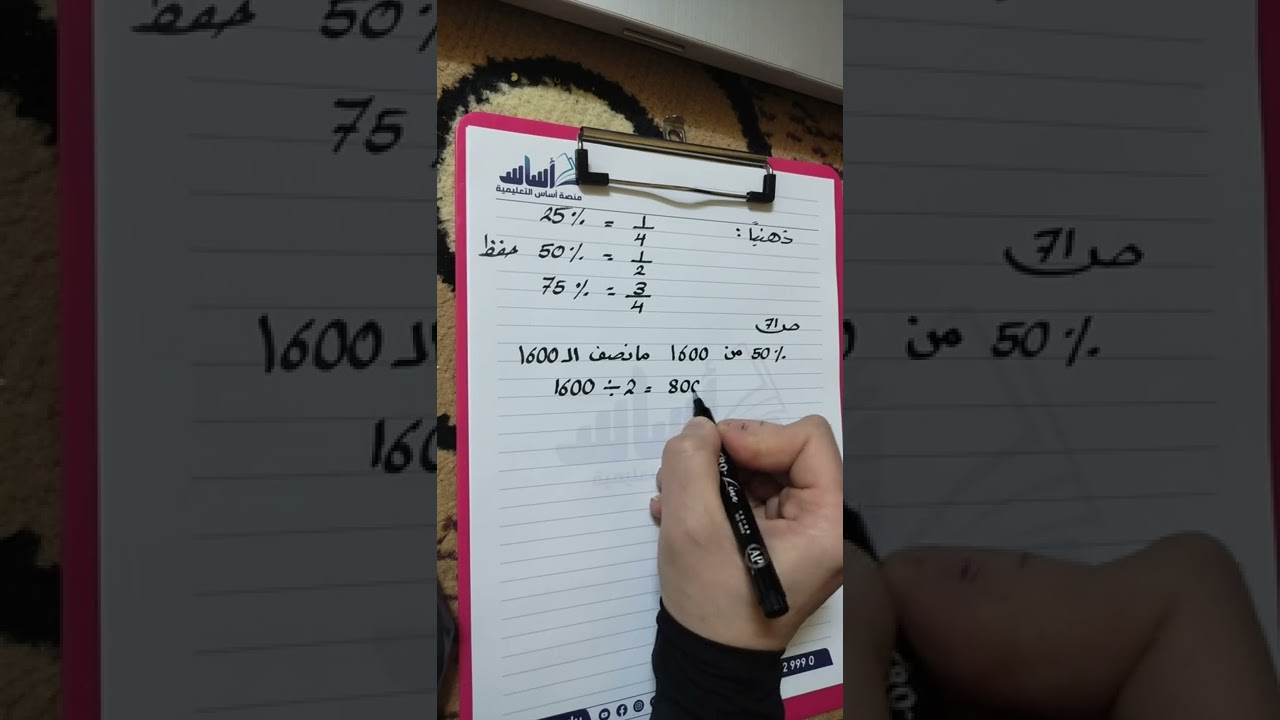 أساس
منصة أساس التعليمية
ذهنيًا :
25% = 1/4
50% = 1/2 حفظ
75% = 3/4
ص71
50% من 1600 مانصف الـ 1600
1600 ÷ 2 = 800
2 999 0